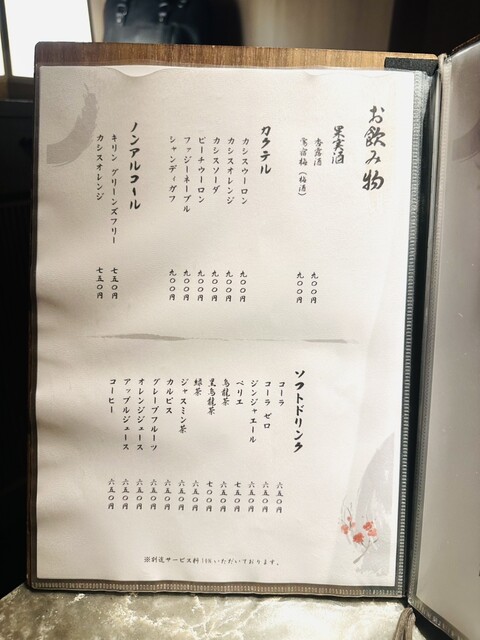 お飲み物
果実酒
杏露酒 九〇〇円
鶯宿梅(梅酒) 九〇〇円
カクテル
カシスウーロン 九〇〇円
カシスオレンジ 九〇〇円
カシスソーダ 九〇〇円
ピーチウーロン 九〇〇円
ファジーネーブル 九〇〇円
シャンディガフ 九〇〇円
ノンアルコール
キリン グリーンズフリー 七五〇円
カシスオレンジ 七五〇円
ソフトドリンク
コーラ 六五〇円
コーラ ゼロ 六五〇円
ジンジャエール 六五〇円
ペリエ 七五〇円
烏龍茶 六五〇円
黒烏龍茶 七〇〇円
緑茶 六五〇円
ジャスミン茶 六五〇円
カルピス 六五〇円
グレープフルーツ 六五〇円
オレンジジュース 六五〇円
アップルジュース 六五〇円
コーヒー 六五〇円
※別途サービス料いただいております。